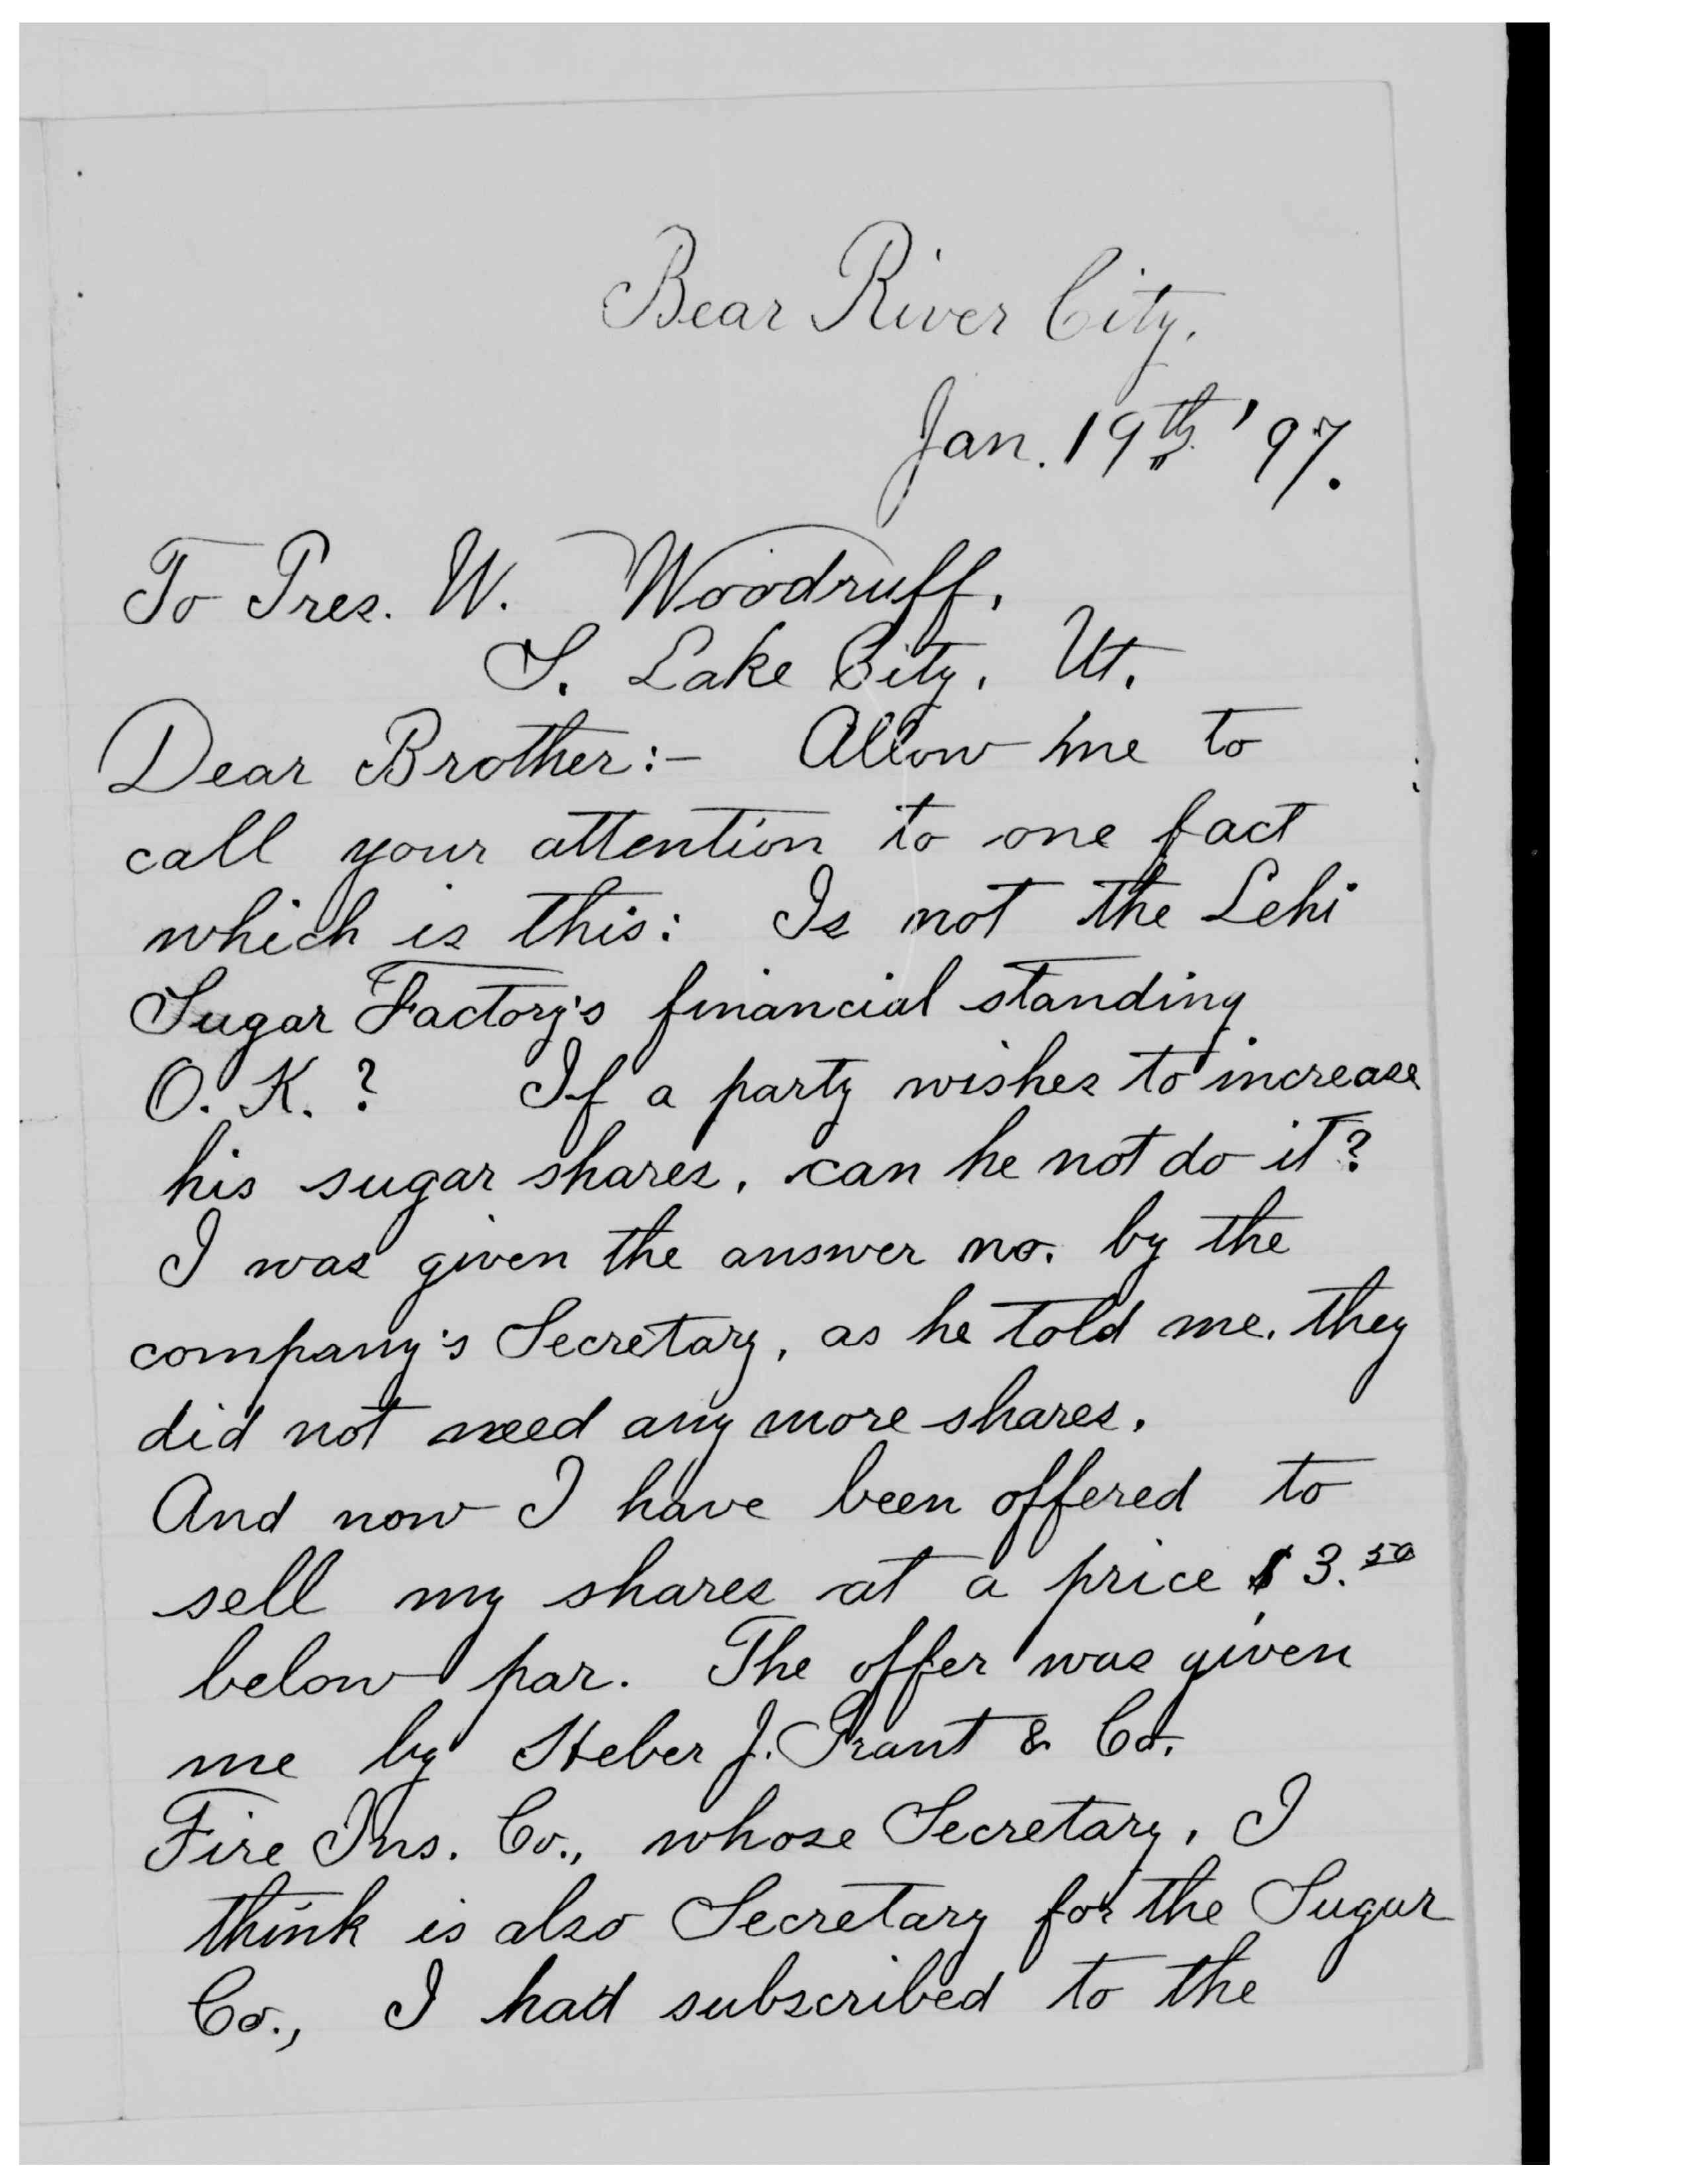 Bear River City.
Jan. 19th '97.
To Pres. W. Woodruff,
S. Lake City, Ut.
Dear Brother:- Allow me to
call your attention to one fact
which is this: Is not the Lehi
Sugar Factory's financial standing
O. K.? If a party wishes to increase
his sugar shares, can he not do it?
I was given the answer no. by the
company's Secretary, as he told me, they
did not need any more shares.
And now I have been offered to
sell my shares at a price $3.50
below par. The offer was given
me by Heber J. Grant & Co.
Fire Ins. Co., whose Secretary, I
think is also Secretary for the Sugar
Co., I had subscribed to the